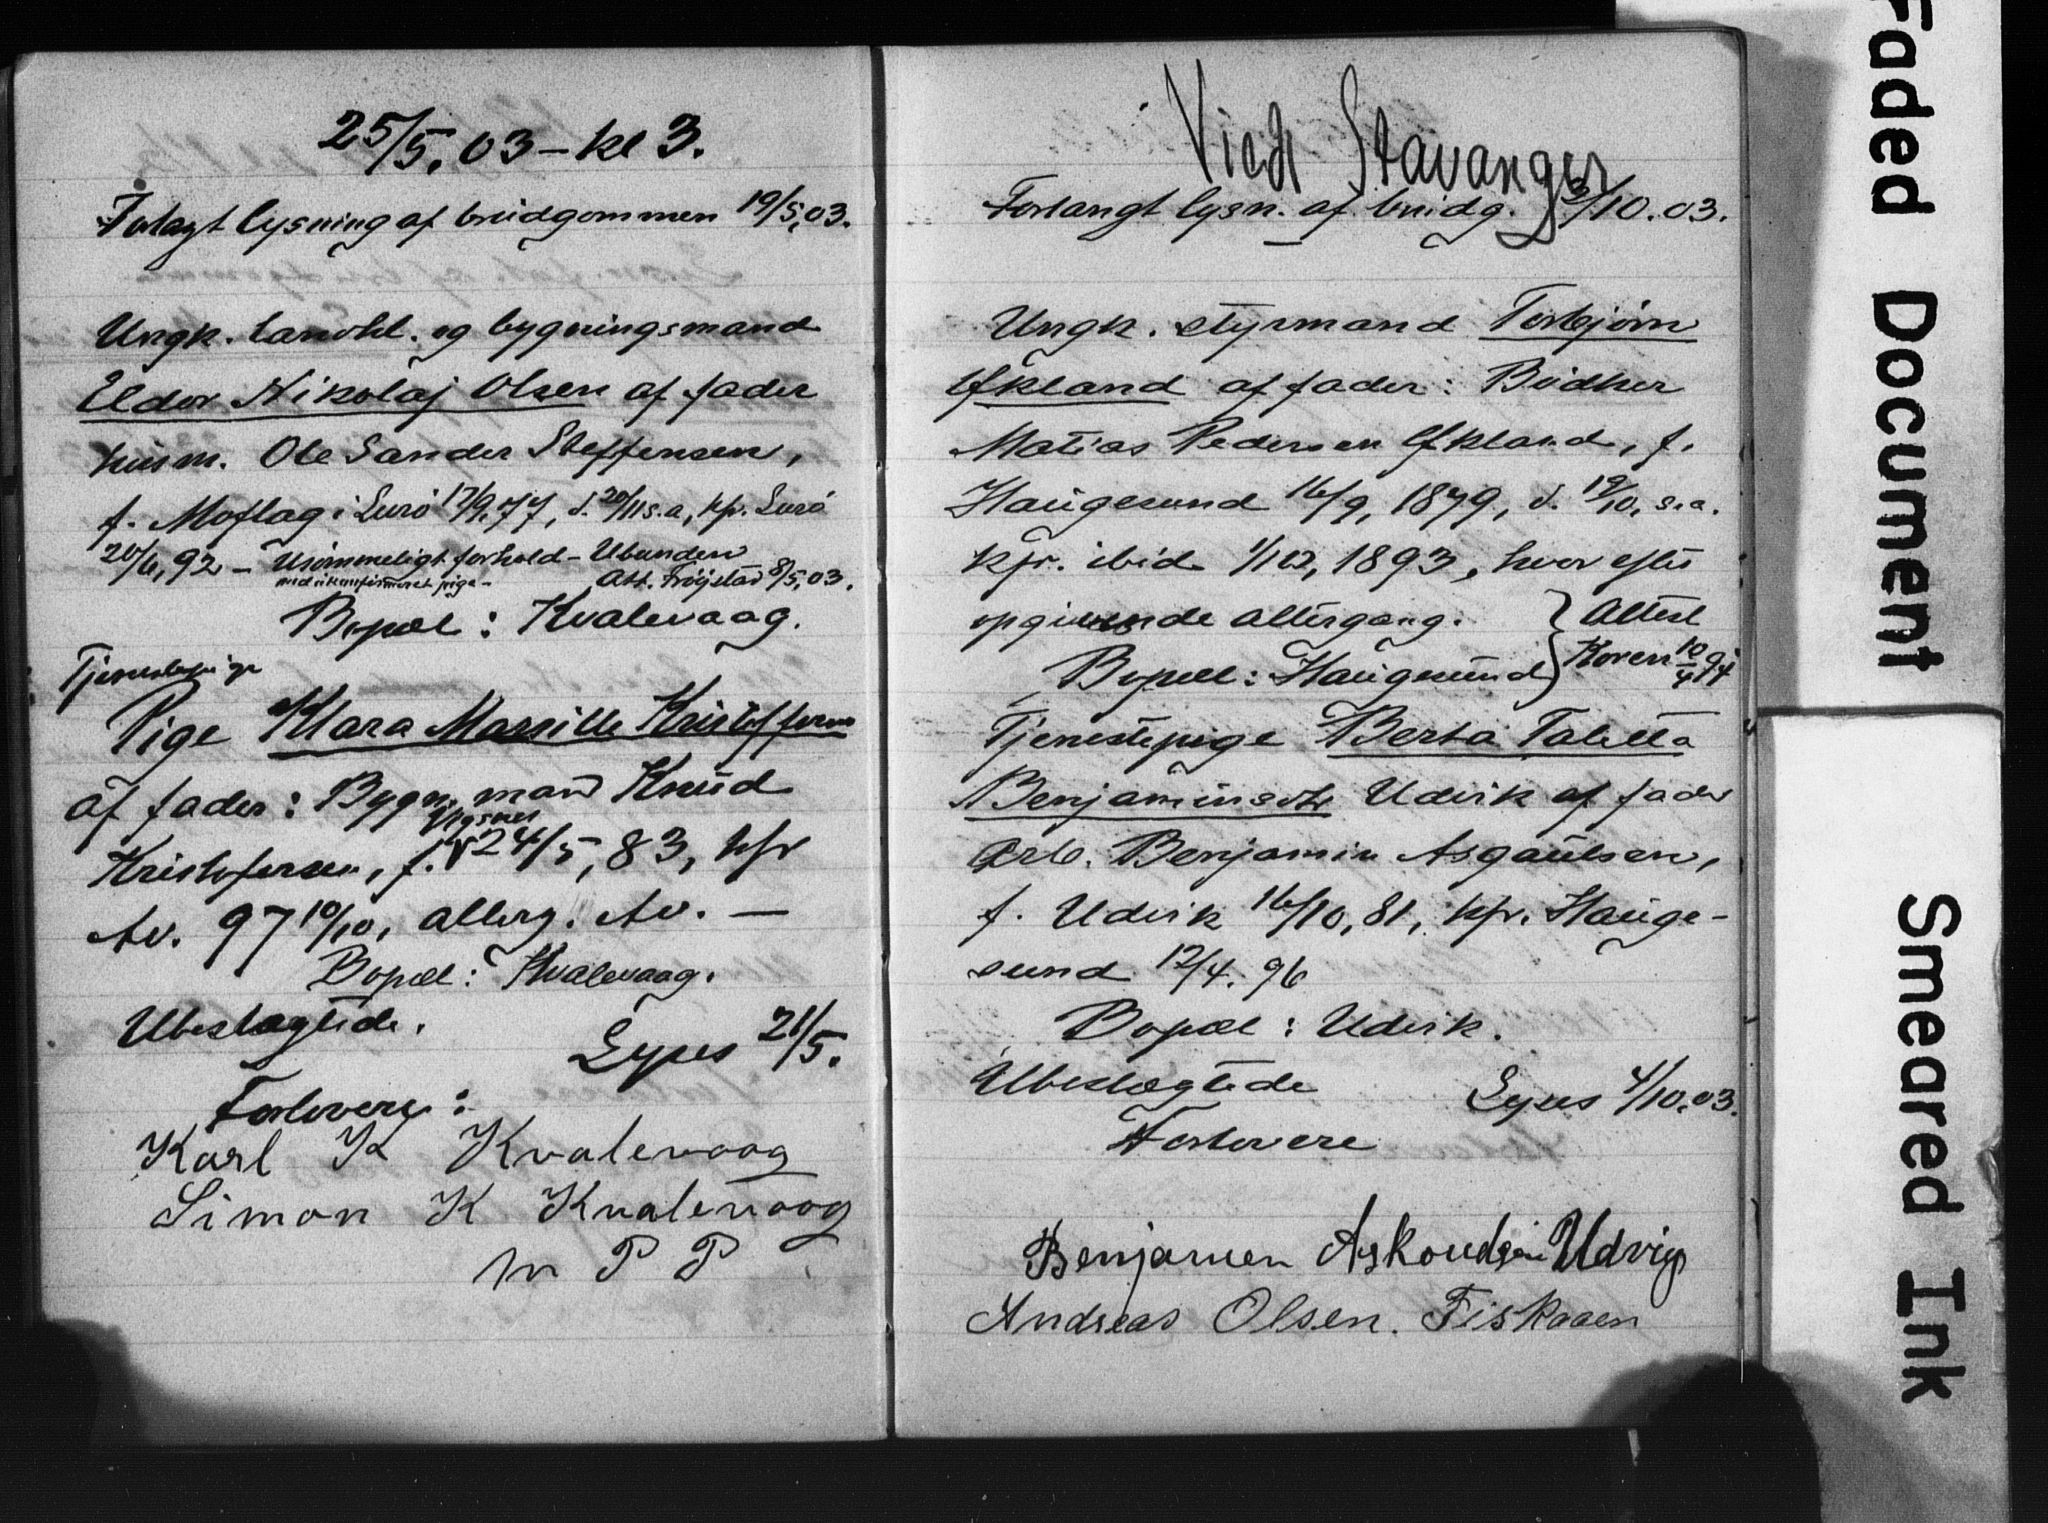 25/5. 03 – kl 3.
Forlagt lysning af brudgommen 19/5, 03.
Ungk. landhl. og bygningsmand
Eldor Nikolaj Olsen af fader
husm. Ole Sander Steffensen,
f. Moflag i Lurö 17/9, 77, d. 20/11 s.a, kfr. Lurö
20/6, 92 – Usömmeligt forhold – Ubunden
med ukonfirmeret pige – Att. Fröystad 8/5, 03.
Bopæl : Kvalevaag.
Tjenestepige
Pige Klara Marsille Kristoffersen
af fader : Bygn. mand Knud
Vigsnes
Kristofersen, f. 24/5, 83, kfr
Av. 97 10/10, alterg. Av. —
Bopæl : Kvalevaag.
Ubeslægtede.
Lyses 21/5.
Forlovere :
Karl K Kvalevaag
Simon K Kvalevaag
m P P
Viedt Stavanger
Forlangt lysn. af brudg. 3/10. 03.
Ungk. styrmand Torbjørn
Økland af fader : Bødker
Matias Pedersen Økland, f.
Haugesund 16/9, 1879, d. 19/10, s.a.
kfr. ibid 1/10, 1893, hvor efter
opgivende altergang. } Attest
Bopæl : Haugesund } Koren 10/4 94
Tjenestepige Berta Tabitta
Benjaminsdtr Udvik af fader
Arb. Benjamin Asgautsen,
f. Udvik 16/10, 81, kfr. Hauge-
sund 12/4. 96
Bopæl : Udvik.
Ubeslægtede
Lyses 4/10. 03.
Forlovere
Benjamen Askoudsen Udvig
Andreas Olsen. Fiskaaen
Faded Document
Smeared Ink